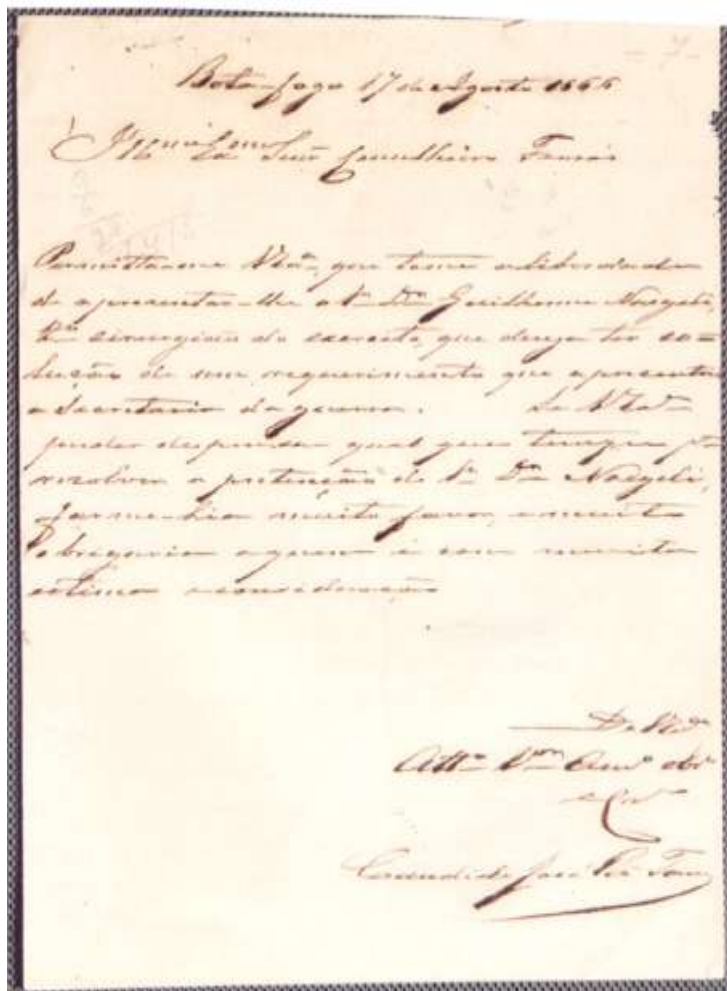 Botafogo 17 de Agosto 1866
Illmo Exmo Senr Conselheiro
Permitta-me VExa, que tome a liberdade
de apresentar-lhe o Sr Dor Guilherme Naegeli,
cirurgião do exercito, que deseja ter so-
lução de um requerimento que apresentou
a Secretaria da guerra. Se VExa
poder dispensar qual quer tempo pa
resolver a pretenção do Sr Dor Naegeli,
far-me-hia muito favor, e muito
obrigaria a quem é com muita
estima e consideração
De VExa
Atto Vor Amo obro
e Cro
Candido José